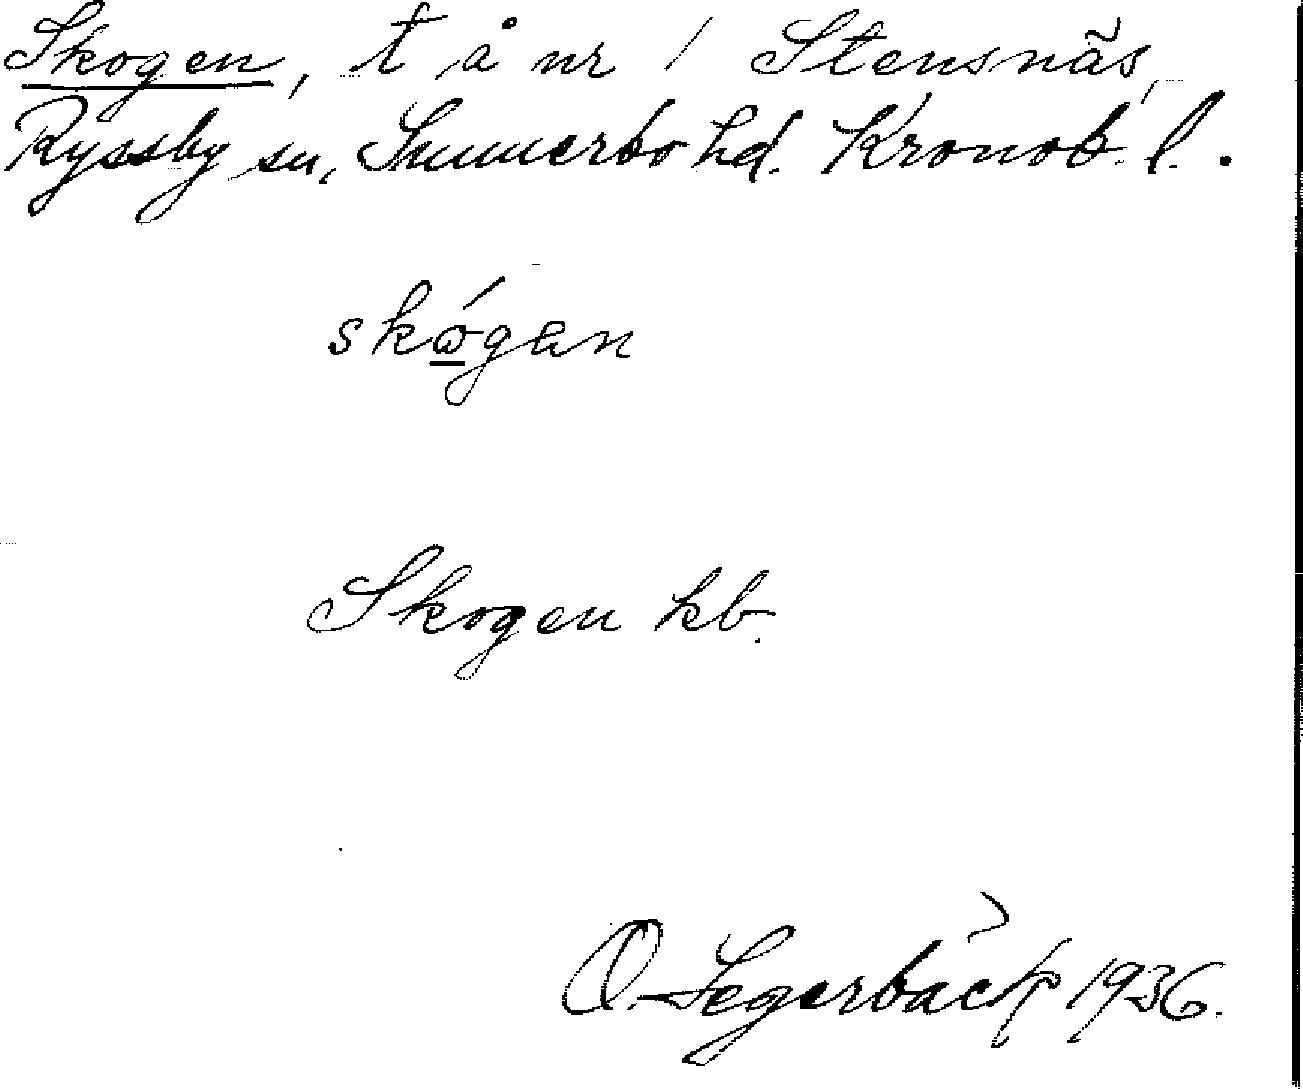 Skogen, t å nr 1 Stensnäs,
Ryssby sn, Sunnerbo hd. Kronob. l.
skógan
Skogen kb.
O. Segerbäck 1936.